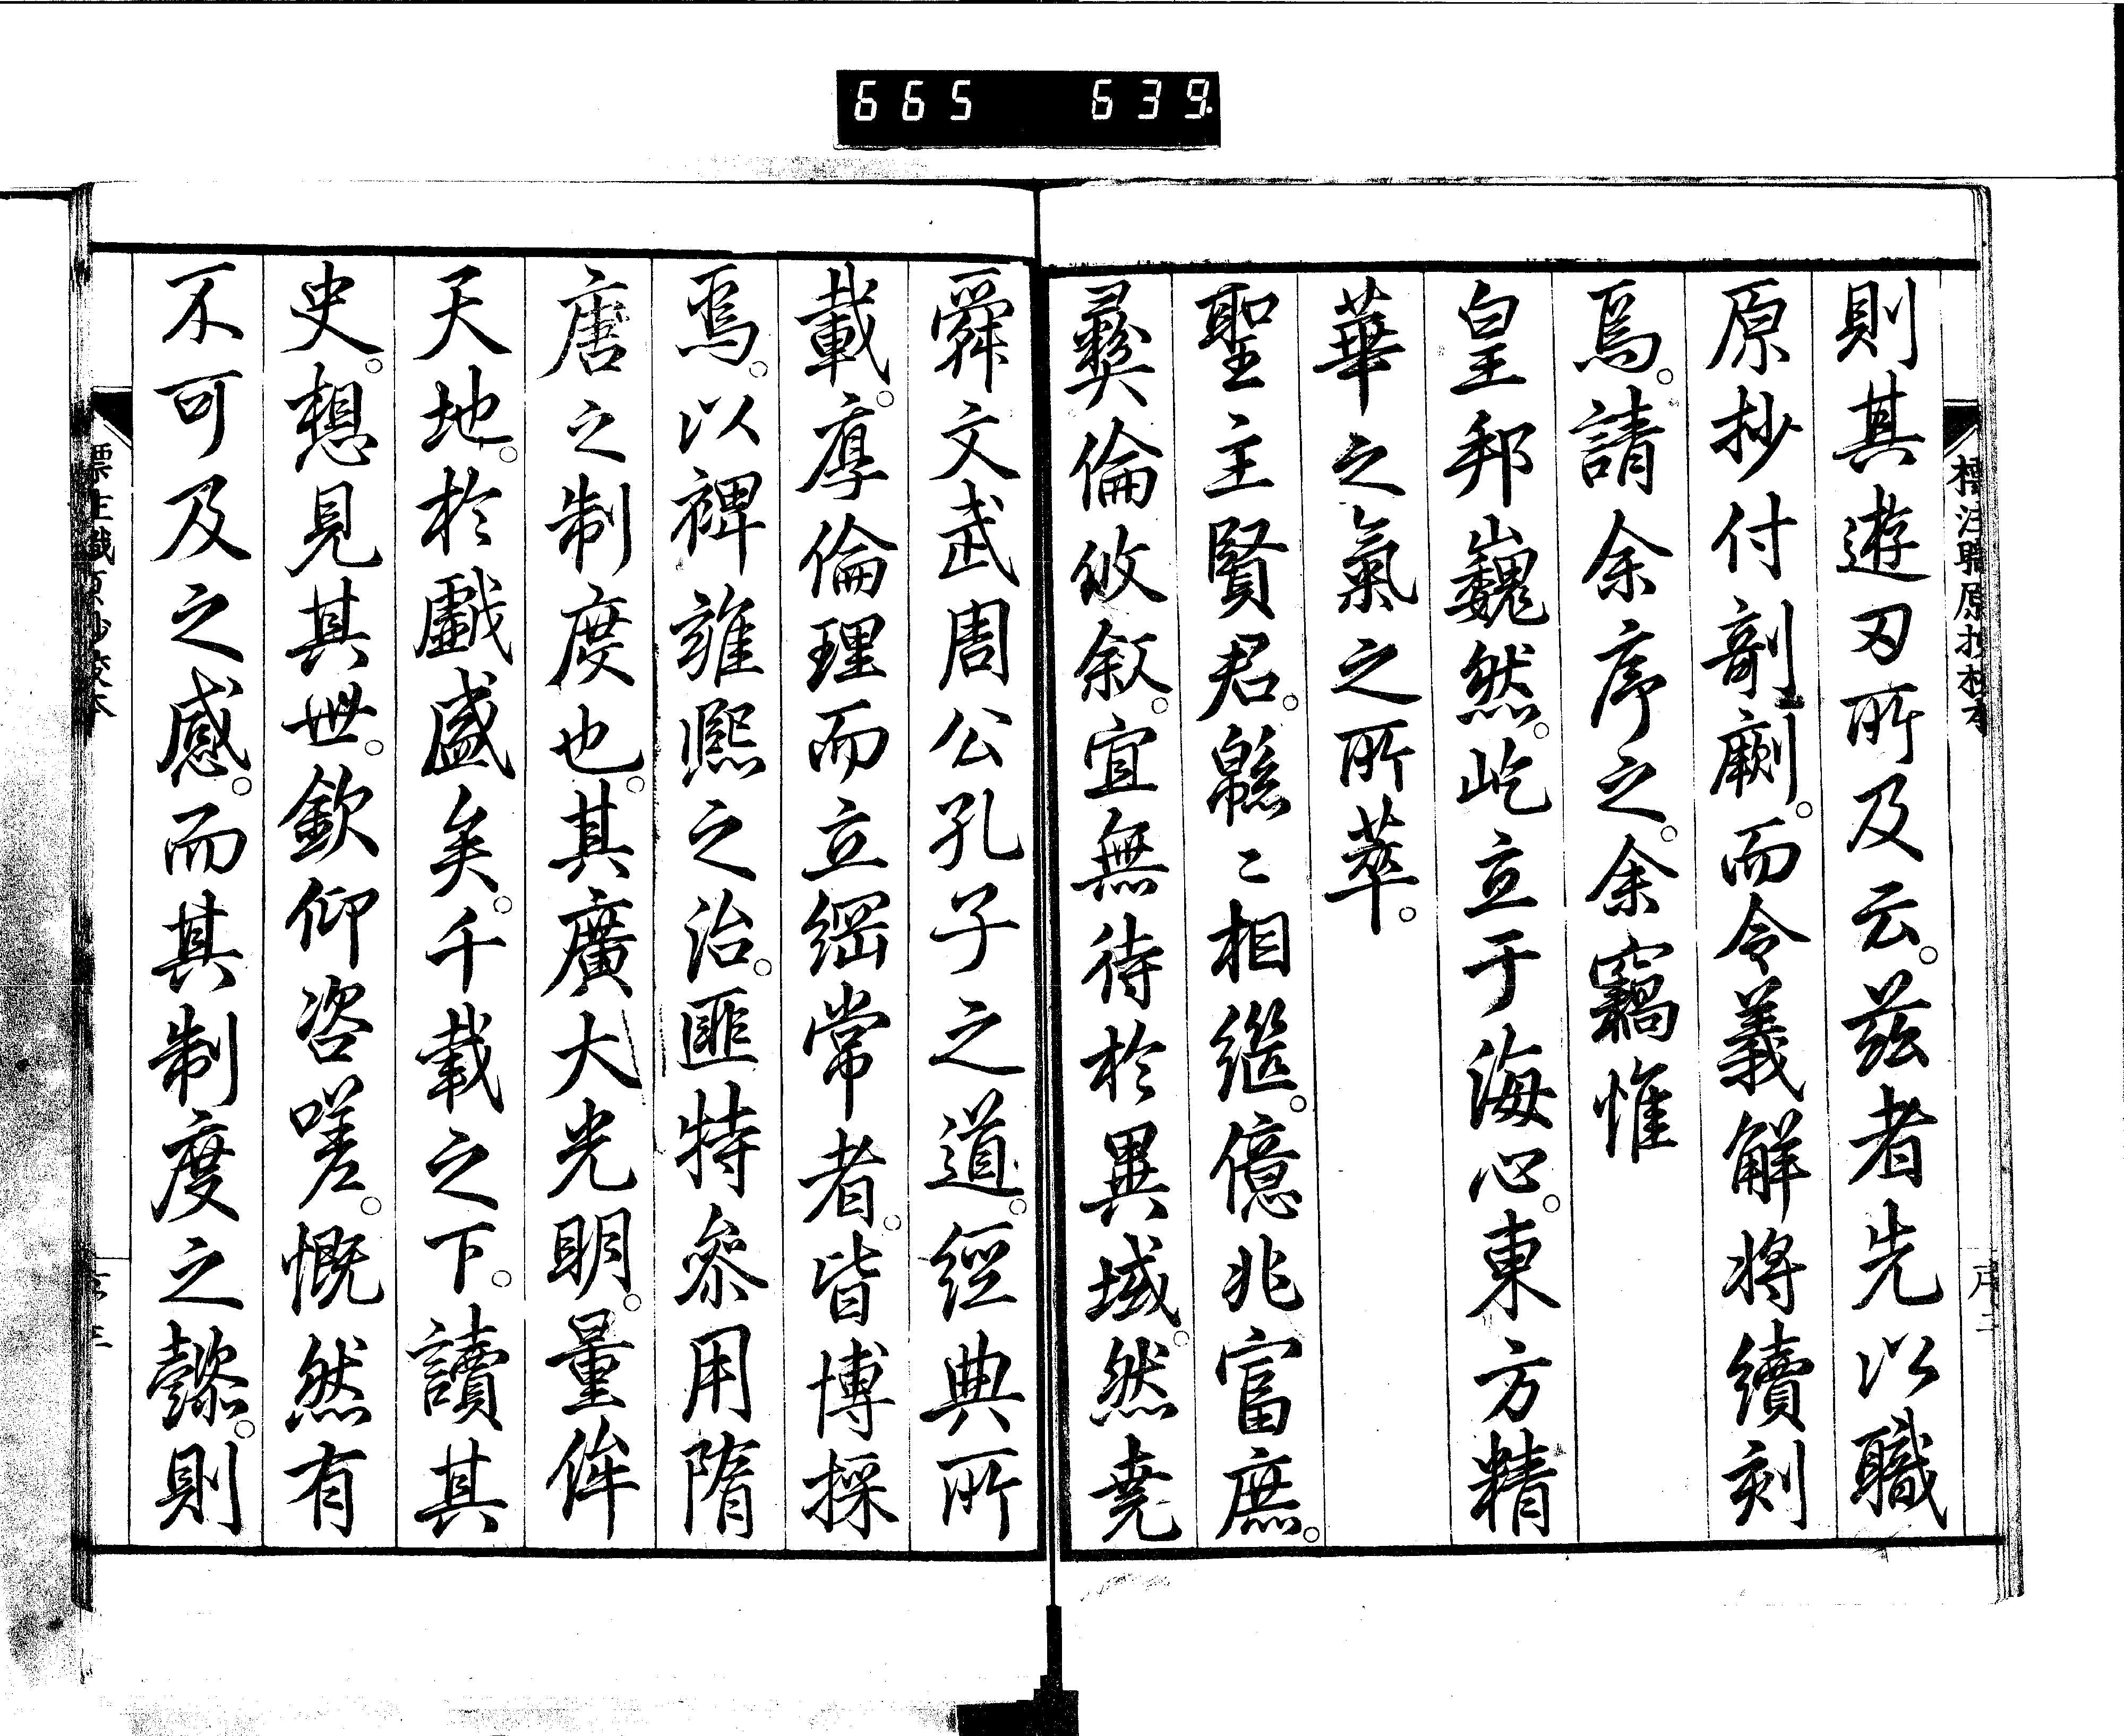 665 639.
標注職原抄校本
序二
則其遊刃所及云。茲者先以職
原抄付剞劂。而令義解将續刻
焉。請余序之。余竊惟
皇邦巍然。屹立于海心。東方精
華之氣之所萃。
聖主賢君。緜〻相繼。億兆富庶。
彜倫攸叙。宜無待於異域。然堯
舜文武周公孔子之道。經典所
載。厚倫理而立綱常者。皆博採
焉。以裨雍熙之治。匪特參用隋
唐之制度也。其廣大光明。量侔
天地。於戲盛矣。千載之下。讀其
史。想見其世。欽仰咨嗟。慨然有
不可及之感。而其制度之懿。則
標注職原抄校本